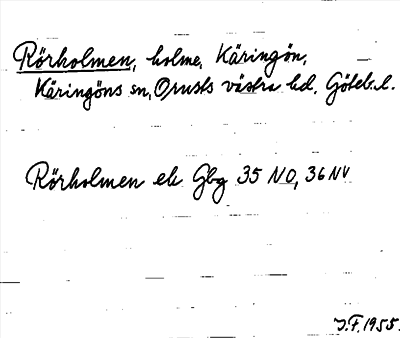 Rörholmen, holme, Käringön,
Käringöns sn, Orusts västra hd, Göteb. l.
Rörholmen ek Gbg 35 NO, 36 NV
J.F. 1955.